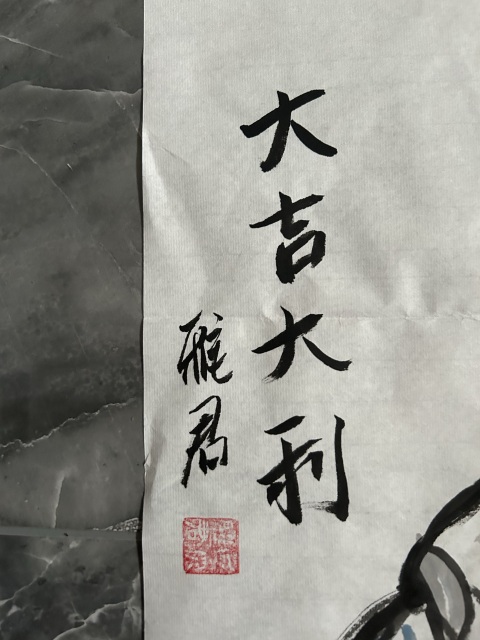 大吉大利
君